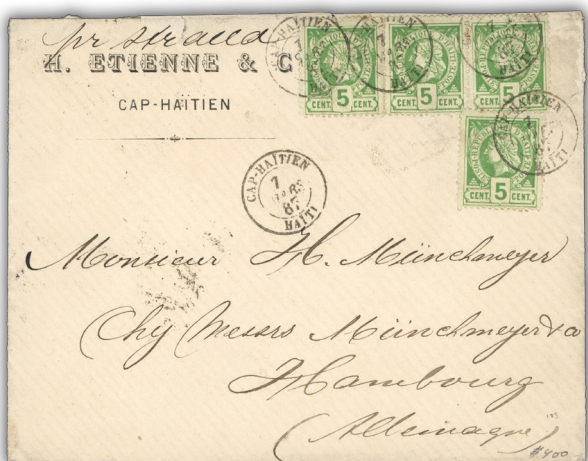 pr Strand
H. ETIENNE & C
CAP-HAÏTIEN
5
CENT. CENT.
5
CENT. CENT.
5
CENT. CENT.
5
CENT. CENT.
CAP-HAÏTIEN
7
MARS
87
HAÏTI
Monsieur H. Münchmeyer
Chy Messrs Münchmeyer & Co
Hambourg
(Allemagne)
$400